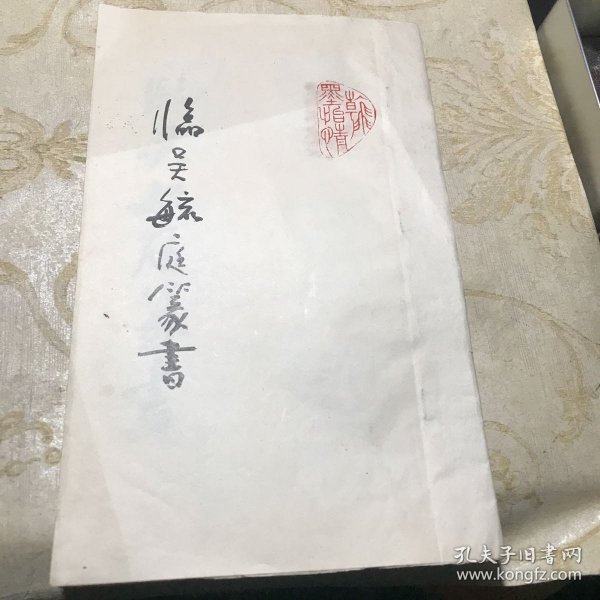 臨吴毓庭篆書
孔夫子旧書网
www.kongfz.com